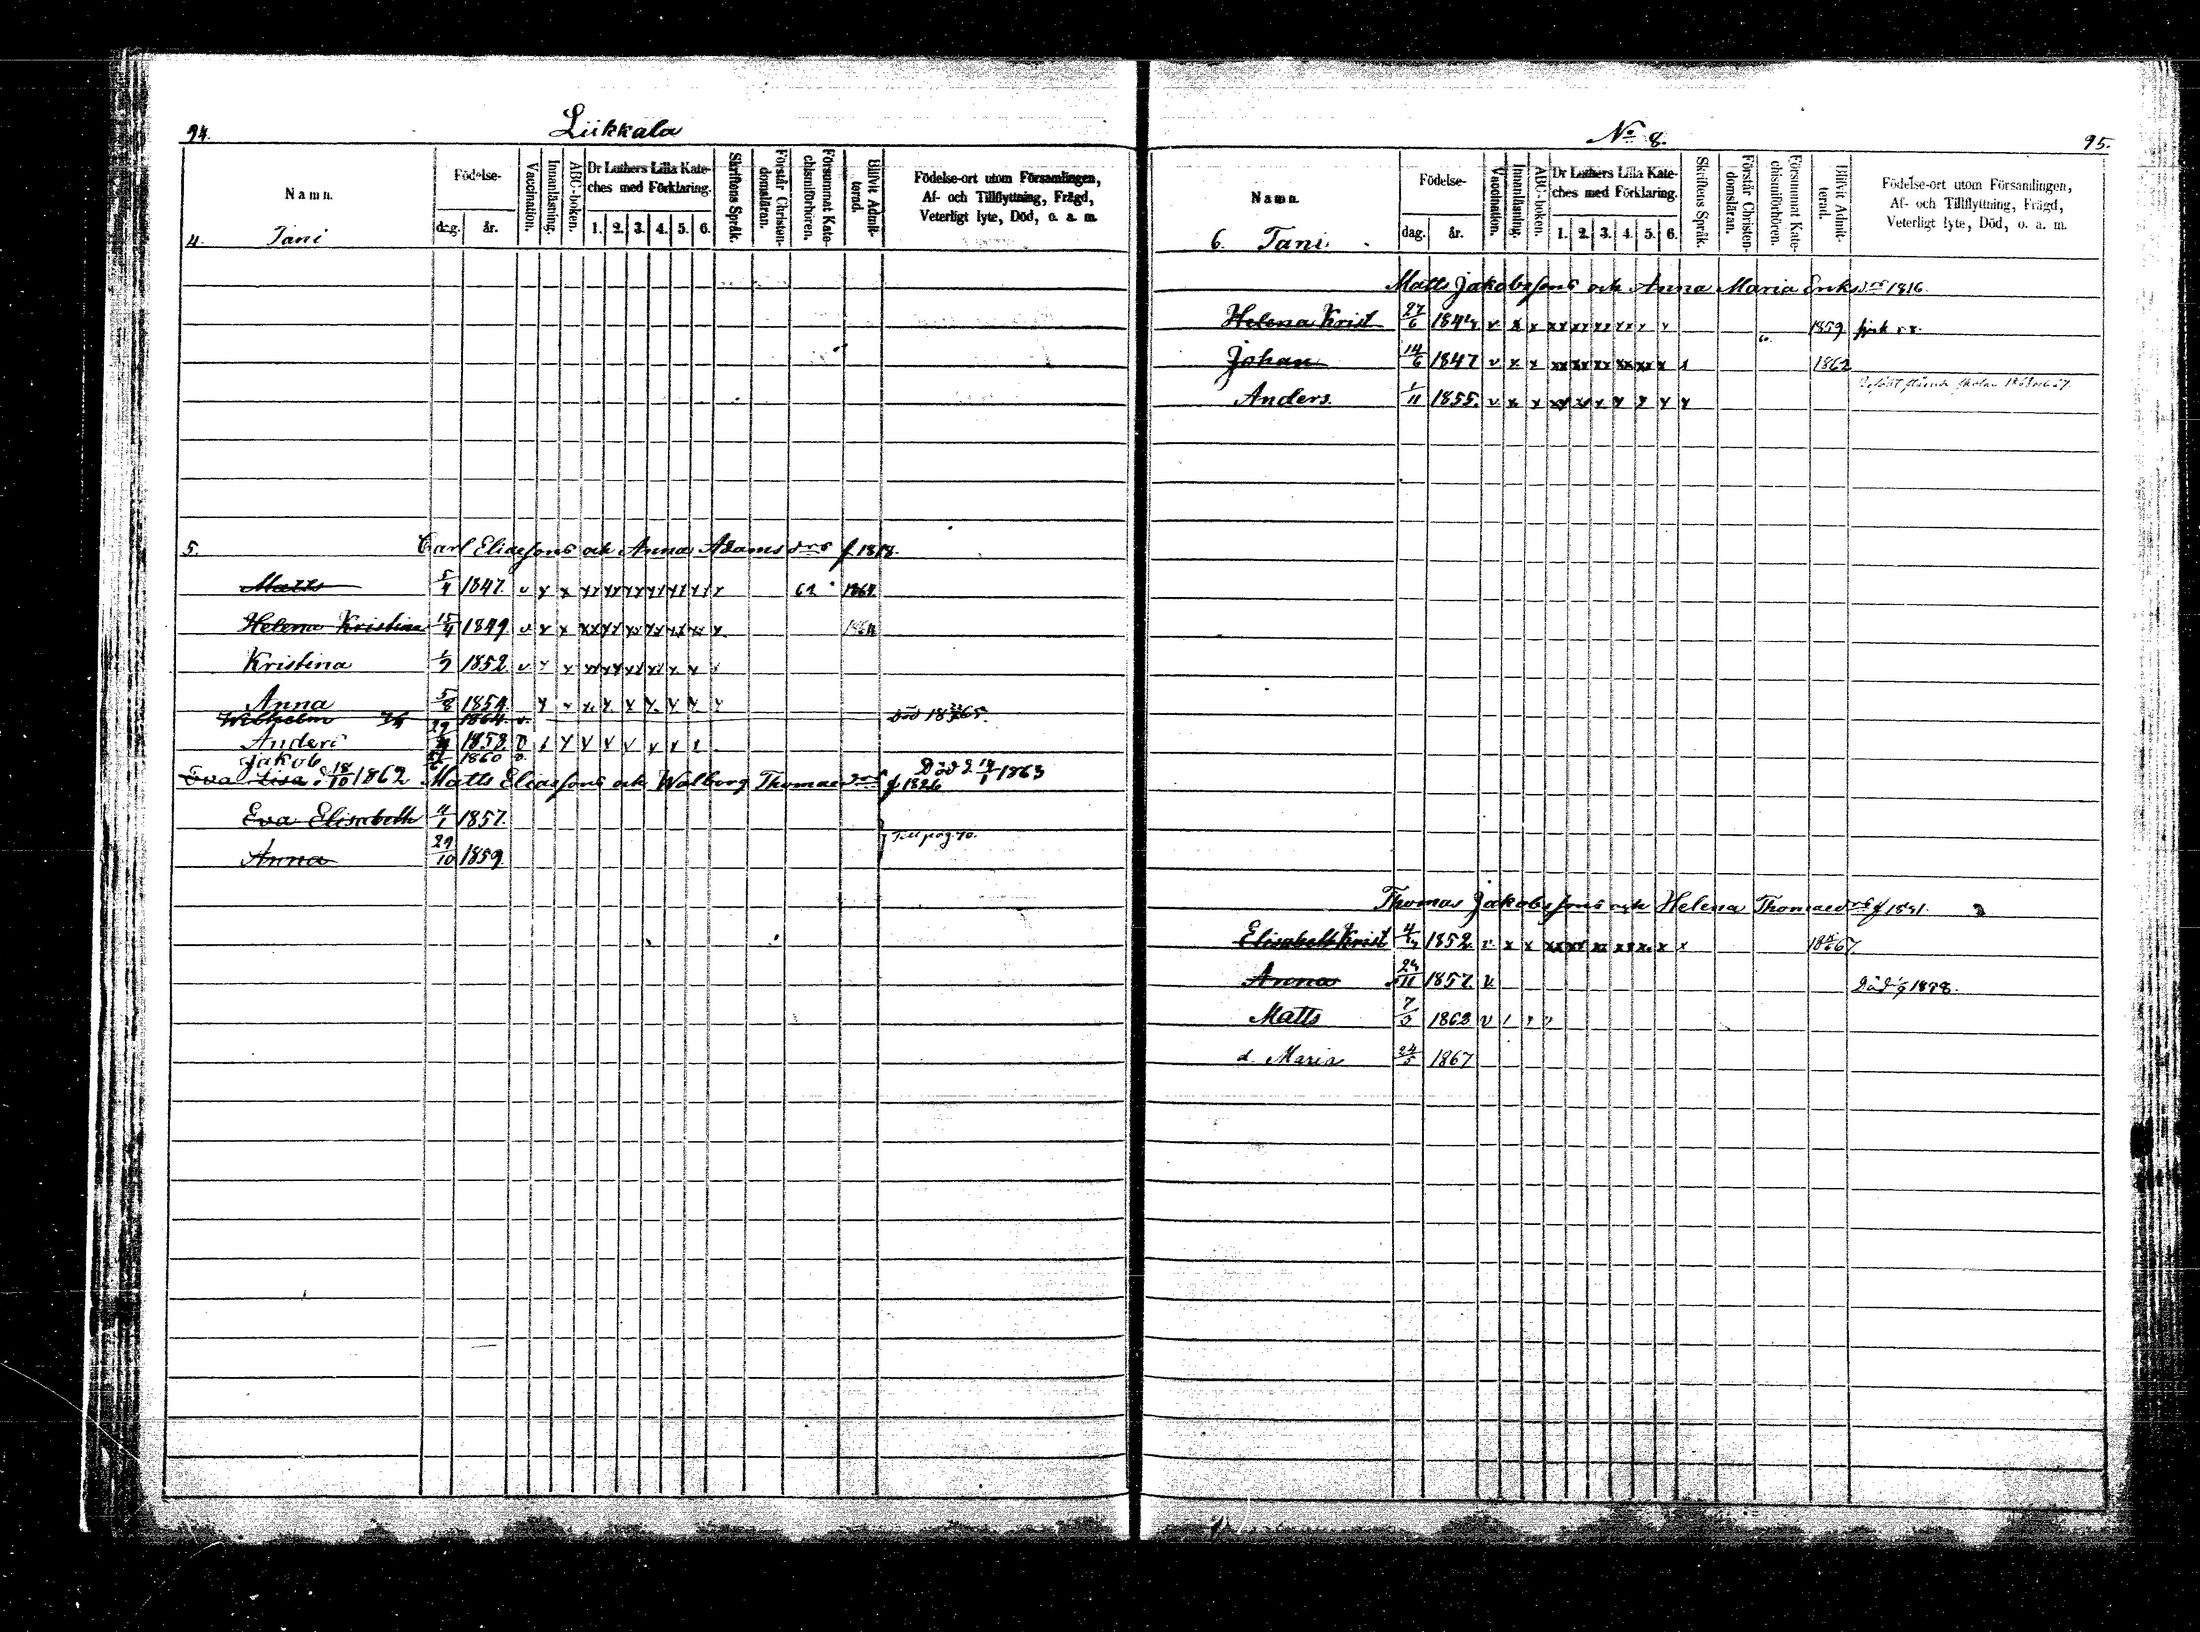 94.
Liikkala
Namn.
Födelse-
dag.
år.
Vaccination.
Innanläsning.
ABC-boken.
Dr Luthers Lilla Kate-
ches med Förklaring.
1. 2. 3. 4. 5. 6.
Skriftens Språk.
Förstår Christen-
domsläran.
Försummat Kate-
chismiförhören.
Blifvit Admit-
terad.
Födelse-ort utom Församlingen,
Af- och Tillflyttning, Frägd,
Veterligt lyte, Död, o. a. m.
4. Tani
5. Carl Eliassons och Anna Adamsdrs f 1818.
Matts 5/4 1847. v x x xx xx xx xx xx xx x 62 1864
Helena Kristina 15/4 1849 v x x xx xx xx xx xx xx x
Kristina 1852. v x x xx xx xx xx x x
Anna 5/8 1854 x x x x x x x x x
Wilhelm 1864. v. Död 1865.
Anders 1858 v
Jakob 1860 v.
Eva Lisa d 18/10 1862 Död d 1863
Matts Eliassons och Walborg Thomaedrs f 1826
Eva Elisabeth 1857.
Anna 29/10 1859
Till pag. 70.
No 8.
95.
Namn.
Födelse-
dag.
år.
Vaccination.
Innanläsning.
ABC-boken.
Dr Luthers Lilla Kate-
ches med Förklaring.
1. 2. 3. 4. 5. 6.
Skriftens Språk.
Förstår Christen-
domsläran.
Försummat Kate-
chismiförhören.
Blifvit Admit-
terad.
Födelse-ort utom Församlingen,
Af- och Tillflyttning, Frägd,
Veterligt lyte, Död, o. a. m.
6. Tani
Matts Jakobssons och Anna Maria Eriksdrs 1816.
Helena Krist 27/6 1844 v x x xx xx xx xx x x 1859
Johan 14/6 1847 v x x xx xx xx xx xx x x 1862
Anders 1/11 1855. v x x xx xx x x x x x
Thomas Jakobssons och Helena Thomaedrs f 1831.
Elisabeth Krist 1852. v. x x xx xx xx xx x x x 1867.
Anna 1857. v.
Matts 1863 v
d. Maria 24/5 1867